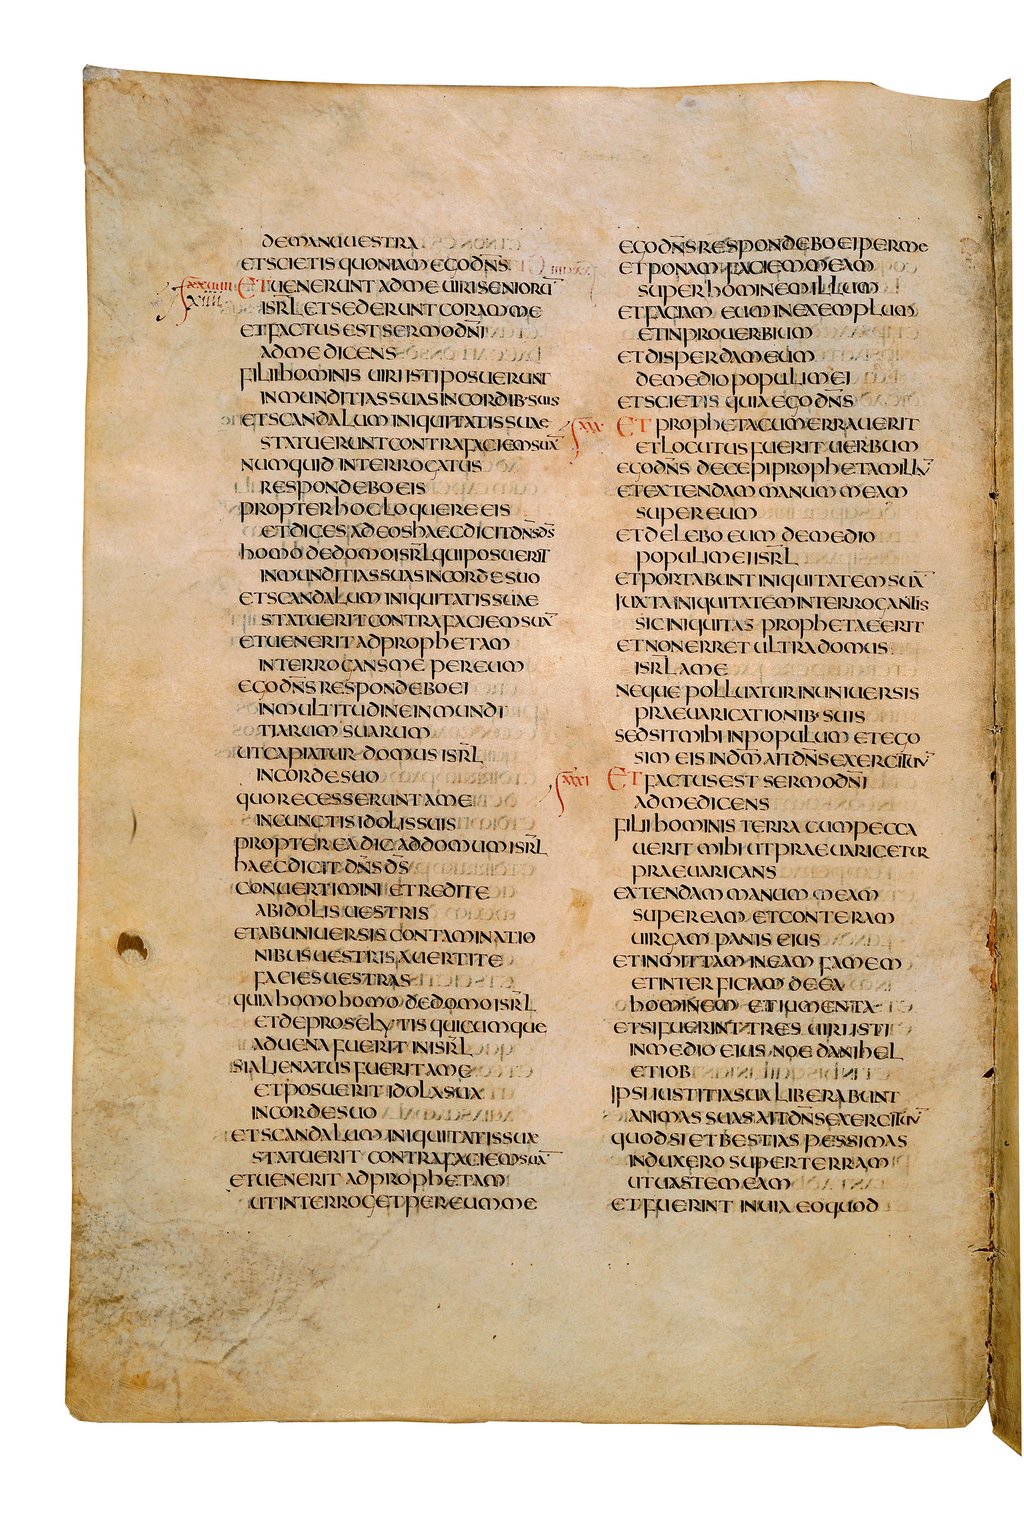 DE MANU UESTRA
ET SCIETIS QUONIAM EGO DN̄S
xxuiiii xiiii ET UENERUNT AD ME UIRI SENIORŪ
ISRL̄ ET SEDERUNT CORAM ME
ET FACTUS EST SERMO DN̄I
AD ME DICENS
FILII HOMINIS UIRI ISTI POSUERUNT
INMUNDITIAS SUAS IN CORDIB· SUIS
ET SCANDALUM INIQUITATIS SUAE
STATUERUNT CONTRA FACIEM SUĀ
NUMQUID INTERROGATUS
RESPONDEBO EIS
PROPTER HOC LOQUERE EIS
ET DICES AD EOS HAEC DICIT DN̄S DS̄
HOMO HOMO DE DOMO ISRL̄ QUI POSUERIT
INMUNDITIAS SUAS IN CORDE SUO
ET SCANDALUM INIQUITATIS SUAE
STATUERIT CONTRA FACIEM SUĀ
ET UENERIT AD PROPHETAM
INTERROGANS ME PER EUM
EGO DN̄S RESPONDEBO EI
IN MULTITUDINE INMUNDI
TIARUM SUARUM
UT CAPIATUR DOMUS ISRL̄
IN CORDE SUO
QUO RECESSERUNT A ME
IN CUNCTIS IDOLIS SUIS
PROPTEREA DIC AD DOMUM ISRL̄
HAEC DICIT DN̄S DS̄
CONUERTIMINI ET REDITE
AB IDOLIS UESTRIS
ET AB UNIUERSIS CONTAMINATIO
NIBUS UESTRIS AUERTITE
FACIES UESTRAS
QUIA HOMO HOMO DE DOMO ISRL̄
ET DE PROSELYTIS QUICUMQUE
ADUENA FUERIT IN ISRL̄
SI ALIENATUS FUERIT A ME
ET POSUERIT IDOLA SUA
IN CORDE SUO
ET SCANDALUM INIQUITATIS SUAE
STATUERIT CONTRA FACIEM SUĀ
ET UENERIT AD PROPHETAM
UT INTERROGET PER EUM ME
EGO DN̄S RESPONDEBO EI PER ME
ET PONAM FACIEM MEAM
SUPER HOMINEM ILLUM
ET FACIAM EUM IN EXEMPLUM
ET IN PROUERBIUM
ET DISPERDAM EUM
DE MEDIO POPULI MEI
ET SCIETIS QUIA EGO DN̄S
xxx ET PROPHETA CUM ERRAUERIT
ET LOCUTUS FUERIT UERBUM
EGO DN̄S DECEPI PROPHETAM ILLŪ
ET EXTENDAM MANUM MEAM
SUPER EUM
ET DELEBO EUM DE MEDIO
POPULI MEI ISRL̄
ET PORTABUNT INIQUITATEM SUĀ
IUXTA INIQUITATEM INTERROGANTIS
SIC INIQUITAS PROPHETAE ERIT
ET NON ERRET ULTRA DOMUS
ISRL̄ A ME
NEQUE POLLUATUR IN UNIUERSIS
PRAEUARICATIONIB· SUIS
SED SIT MIHI IN POPULUM ET EGO
SIM EIS IN DM̄ AIT DN̄S EXERCITUŪ
xxxi ET FACTUS EST SERMO DN̄I
AD ME DICENS
FILII HOMINIS TERRA CUM PECCA
UERIT MIHI UT PRAEUARICETUR
PRAEUARICANS
EXTENDAM MANUM MEAM
SUPER EAM ET CONTERAM
UIRGAM PANIS EIUS
ET INMITTAM IN EAM FAMEM
ET INTERFICIAM DE EA
HOMINEM ET IUMENTA
ET SI FUERINT TRES UIRI ISTI
IN MEDIO EIUS NOE DANIHEL
ET IOB
IPSI IUSTITIA SUA LIBERABUNT
ANIMAS SUAS AIT DN̄S EXERCITUŪ
QUOD SI ET BESTIAS PESSIMAS
INDUXERO SUPER TERRAM
UT UASTEM EAM
ET FUERINT INUIA EO QUOD